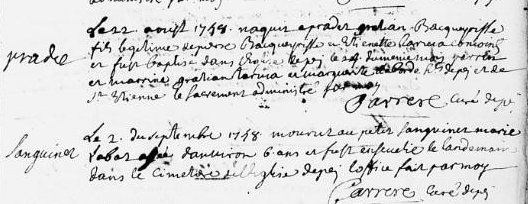 prade
Le 22 aoust 1758. naquit a prades gratian Bacqueyrisse
fils legitime de pierre Bacqueyrisse et Etienette Larrica
et fust baptisé dans Eglise de pej le 24 du meme mois parrin
et marrine gratian larrica et marguerite de pej et de
St Etienne le sacrement administré par moy
Carrere curé de pej
sanguinet
Le 2. du septembre 1758. mourut au petit sanguinet marie
Labat agée d'anviron 6 ans et fust ensevelie le landemain
dans le Cimetiere de l'Eglise de pej l'office fait par moy
Carrere curé de pej